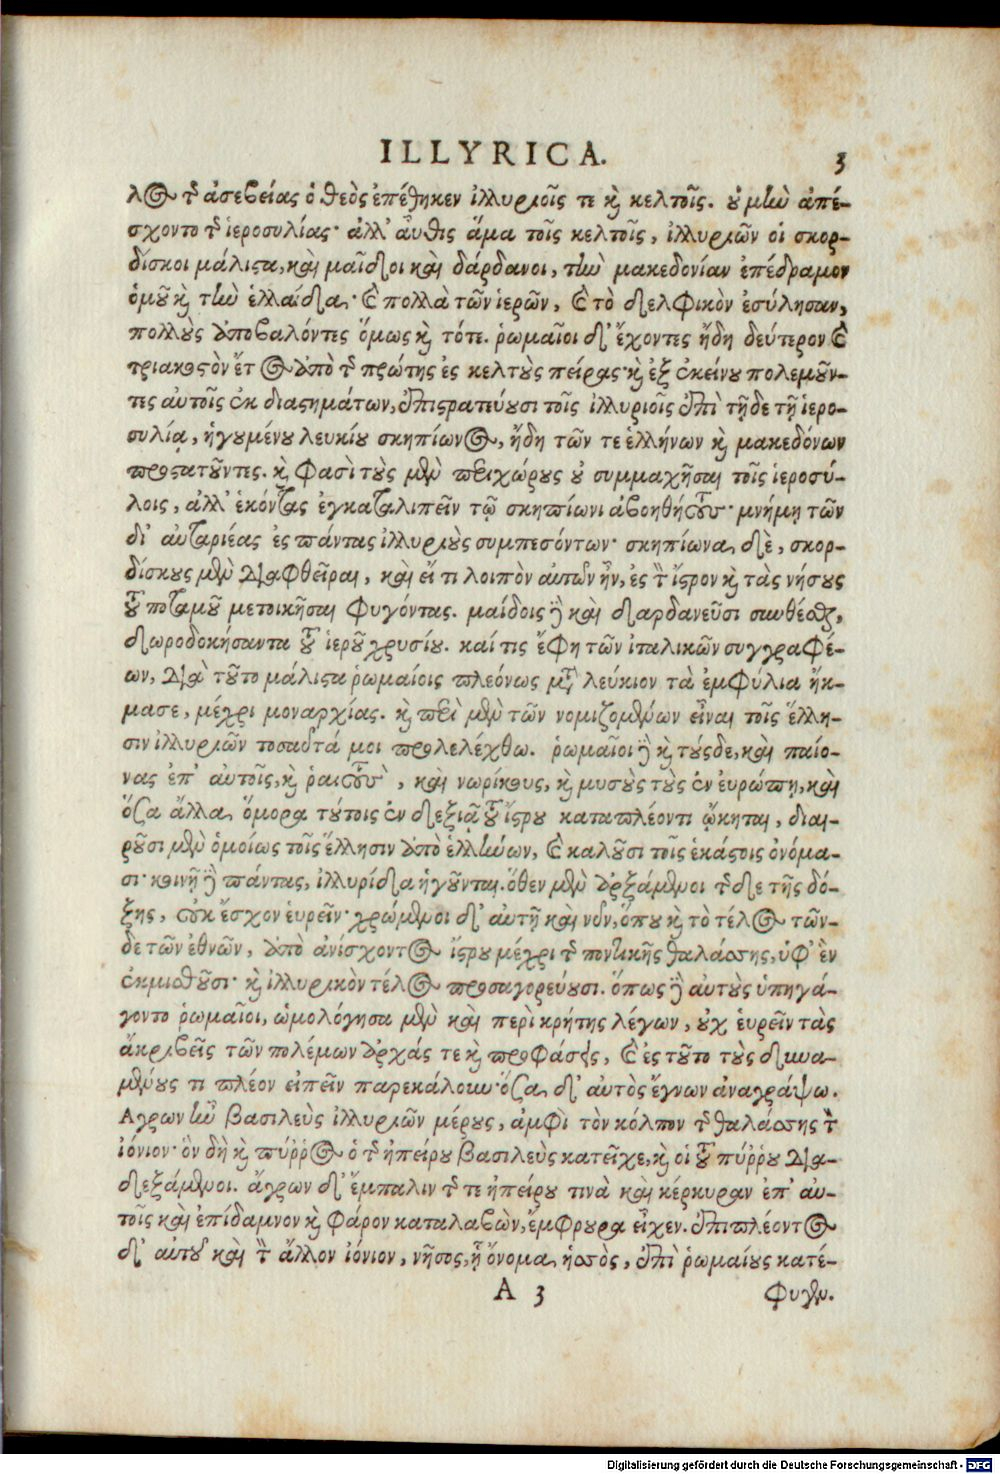 ILLYRICA. 3
λος τῆς ἀσεβείας ὁ θεὸς ἐπέθηκεν ἰλλυριοῖς τε καὶ κελτοῖς. οὐ μὴν ἀπέ-
σχοντο τῆς ἱεροσυλίας· ἀλλ' αὖθις ἅμα τοῖς κελτοῖς, ἰλλυριῶν οἱ σκορ-
δίσκοι μάλιστα, καὶ μαῖδοι καὶ δάρδανοι, τὴν μακεδονίαν ἐπέδραμον
ὁμοῦ καὶ τὴν ἑλλάδα· καὶ πολλὰ τῶν ἱερῶν, καὶ τὸ δελφικὸν ἐσύλησαν,
πολλοὺς ἀποβαλόντες ὅμως καὶ τότε. ῥωμαῖοι δ' ἔχοντες ἤδη δεύτερον καὶ
τριακοστὸν ἔτος ἀπὸ τῆς πρώτης ἐς κελτοὺς πείρας· καὶ ἐξ ἐκείνου πολεμοῦν-
τες αὐτοῖς ἐκ διαστημάτων, ἐπιστρατεύουσι τοῖς ἰλλυριοῖς ἐπὶ τῇδε τῇ ἱερο-
συλίᾳ, ἡγουμένου λευκίου σκηπίωνος, ἤδη τῶν τε ἑλλήνων καὶ μακεδόνων
προστατοῦντες. καὶ φασὶ τοὺς μὲν περιχώρους οὐ συμμαχῆσαι τοῖς ἱεροσύ-
λοις, ἀλλ' ἑκόντας ἐγκαταλιπεῖν τῷ σκηπίωνι ἀβοηθήτους· μνήμῃ τῶν
δι' αὐταριέας ἐς πάντας ἰλλυριοὺς συμπεσόντων· σκηπίωνα δὲ, σκορ-
δίσκους μὲν διαφθεῖραι, καὶ εἴ τι λοιπὸν αὐτῶν ἦν, ἐς τὸν ἴστρον καὶ τὰς νήσους
τοῦ ποταμοῦ μετοικῆσαι φυγόντας. μαίδοις δὲ καὶ δαρδανεῦσι συνθέσθαι,
δωροδοκήσαντα τοῦ ἱεροῦ χρυσίου. καί τις ἔφη τῶν ἰταλικῶν συγγραφέ-
ων, διὰ τοῦτο μάλιστα ῥωμαίοις πλεόνως μετὰ λεύκιον τὰ ἐμφύλια ἤκ-
μασε, μέχρι μοναρχίας. καὶ περὶ μὲν τῶν νομιζομένων εἶναι τοῖς ἕλλη-
σιν ἰλλυριῶν τοσαῦτά μοι προλελέχθω. ῥωμαῖοι δὲ καὶ τούσδε, καὶ παίο-
νας ἐπ' αὐτοῖς, καὶ ῥαιτοὺς, καὶ νωρίκους, καὶ μυσοὺς τοὺς ἐν εὐρώπῃ, καὶ
ὅσα ἄλλα ὅμορα τούτοις ἐν δεξιᾷ τοῦ ἴστρου καταπλέοντι ᾤκηται, διαι-
ροῦσι μὲν ὁμοίως τοῖς ἕλλησιν ἀπὸ ἑλλήνων, καὶ καλοῦσι τοῖς ἑκάστοις ὀνόμα-
σι· κοινῇ δὲ πάντας, ἰλλυρίδα ἡγοῦνται. ὅθεν μὲν ἀρξάμενοι τῆς δε τῆς δό-
ξης, οὐκ ἔσχον εὑρεῖν· χρώμενοι δ' αὐτῇ καὶ νῦν, ὅπου καὶ τὸ τέλος τῶν-
δε τῶν ἐθνῶν, ἀπὸ ἀνίσχοντος ἴστρου μέχρι τῆς ποντικῆς θαλάσσης, ὑφ' ἓν
ἐκμισθοῦσι· καὶ ἰλλυρικὸν τέλος προσαγορεύουσι. ὅπως δὲ αὐτοὺς ὑπηγά-
γοντο ῥωμαῖοι, ὡμολόγησα μὲν καὶ περὶ κρήτης λέγων, οὐχ εὑρεῖν τὰς
ἀκριβεῖς τῶν πολέμων ἀρχάς τε καὶ προφάσεις, καὶ ἐς τοῦτο τοὺς δυνα-
μένους τι πλέον εἰπεῖν παρεκάλουν· ὅσα δ' αὐτὸς ἔγνων ἀναγράψω.
Αγρων ἦν βασιλεὺς ἰλλυριῶν μέρους, ἀμφὶ τὸν κόλπον τῆς θαλάσσης τὸν
ἰόνιον· ὃν δὴ καὶ πύῤῥος ὁ τῆς ἠπείρου βασιλεὺς κατεῖχε, καὶ οἱ τοῦ πύῤῥου δια-
δεξάμενοι. ἄγρων δ' ἔμπαλιν τῆς τε ἠπείρου τινὰ καὶ κέρκυραν ἐπ' αὐ-
τοῖς καὶ ἐπίδαμνον καὶ φάρον καταλαβὼν, ἔμφρουρα εἶχεν. ἐπιπλέοντος
δ' αὐτοῦ καὶ τὸν ἄλλον ἰόνιον, νῆσος, ᾗ ὄνομα ἡσσὸς, ἐπὶ ῥωμαίους κατέ-
A 3 φυγεν.
Digitalisierung gefördert durch die Deutsche Forschungsgemeinschaft - DFG